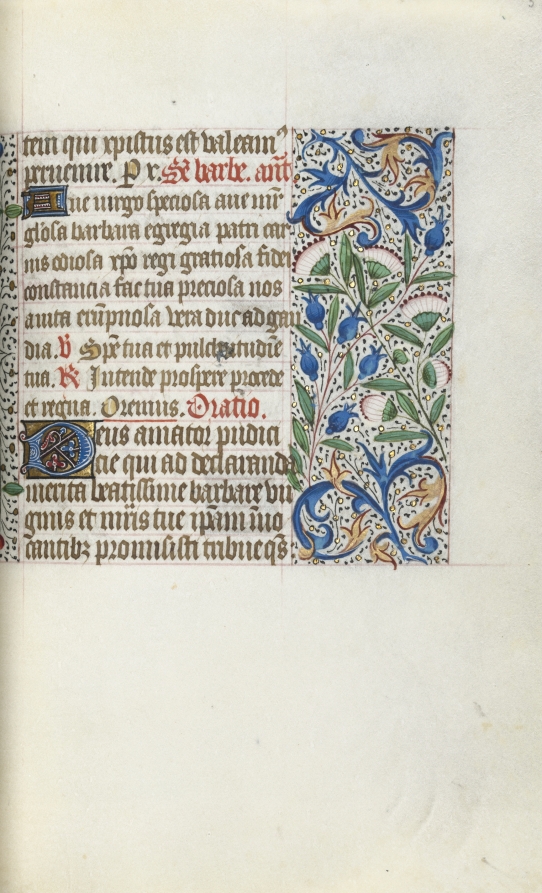 tem qui xpistus est valeamꝰ
peruenire. P x̄. Sc̄ barbe. ant̄
Aue uirgo speciosa aue mr̄
gl'osa barbara egregia patri car
nis odiosa xp̄o regi gratiosa fidei
constancia fac tua preciosa nos
amica erūpnosa vera duc ad gau
dia. V̄ Spē tua et pulchritudīe
tua. R̄ Intende prospere procede
et regna. Oremus. Oratio.
Deus amator pudici
cie qui ad declaranda
merita beatissime barbare vir
ginis et mr̄is tue ip̄am inuo
cantibꝫ promisisti tribue qs̄